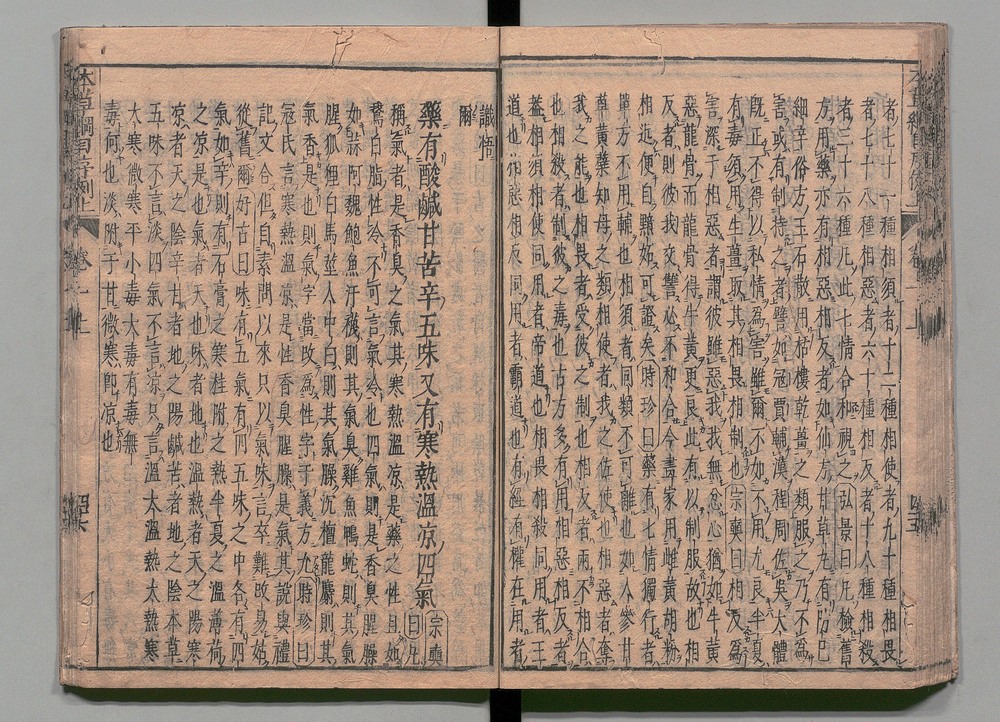 者七十一種相須者十二種相使者九十種相畏
者七十八種相惡者六十種相反者十八種相殺
者三十六種凡此七情合和視之弘景曰凡檢舊
方用藥亦有相惡相反者如仙方甘草丸有防已
細辛俗方玉石散用栝樓乾薑之類服之乃不爲
害或有制持之者譬如冦賈輔漢程周佐吳大體
旣正不得以私情爲害雖爾不如不用尤良半夏
有毒須用生薑取其相畏相制也宗奭曰相反爲
害深于相惡者謂彼雖惡我我無忿心猶如牛黃
惡龍骨而龍骨得牛黃更良此有以制服故也相
反者則彼我交讐必不和合今畫家用雌黃胡粉
相近便自黯妬可證矣時珍曰藥有七情獨行者
單方不用輔也相須者同類不可離也如人參甘
草黃蘗知母之類相使者我之佐使也相惡者奪
我之能也相畏者受彼之制也相反者兩不相合
也相殺者制彼之毒也古方多有用相惡相反者
蓋相須相使同用者帝道也相畏相殺同用者王
道也相惡相反同用者霸道也有經有權在用者
識悟
爾
藥有酸鹹甘苦辛五味又有寒熱溫涼四氣宗奭曰凡
稱氣者是香臭之氣其寒熱溫涼是藥之性且如
鵞白脂性冷不可言氣冷也四氣則是香臭腥臊
如蒜阿魏鮑魚汗襪則其氣臭雞魚鴨蛇則其氣
腥狐狸白馬莖人中白則其氣臊沉檀龍麝則其
氣香是也則氣字當改爲性字于義方允時珍曰
冦氏言寒熱溫涼是性香臭腥臊是氣其說與禮
記文合但自素問以來只以氣味言卒難改易姑
從舊爾好古曰味有五氣有四五味之中各有四
氣如辛則有石膏之寒桂附之熱半夏之溫薄荷
之涼是也氣者天也味者地也溫熱者天之陽寒
涼者天之陰辛甘者地之陽鹹苦者地之陰本草
五味不言淡四氣不言涼只言溫大溫熱大熱寒
大寒微寒平小毒大毒有毒無
毒何也淡附于甘微寒即涼也
本草綱目序例上